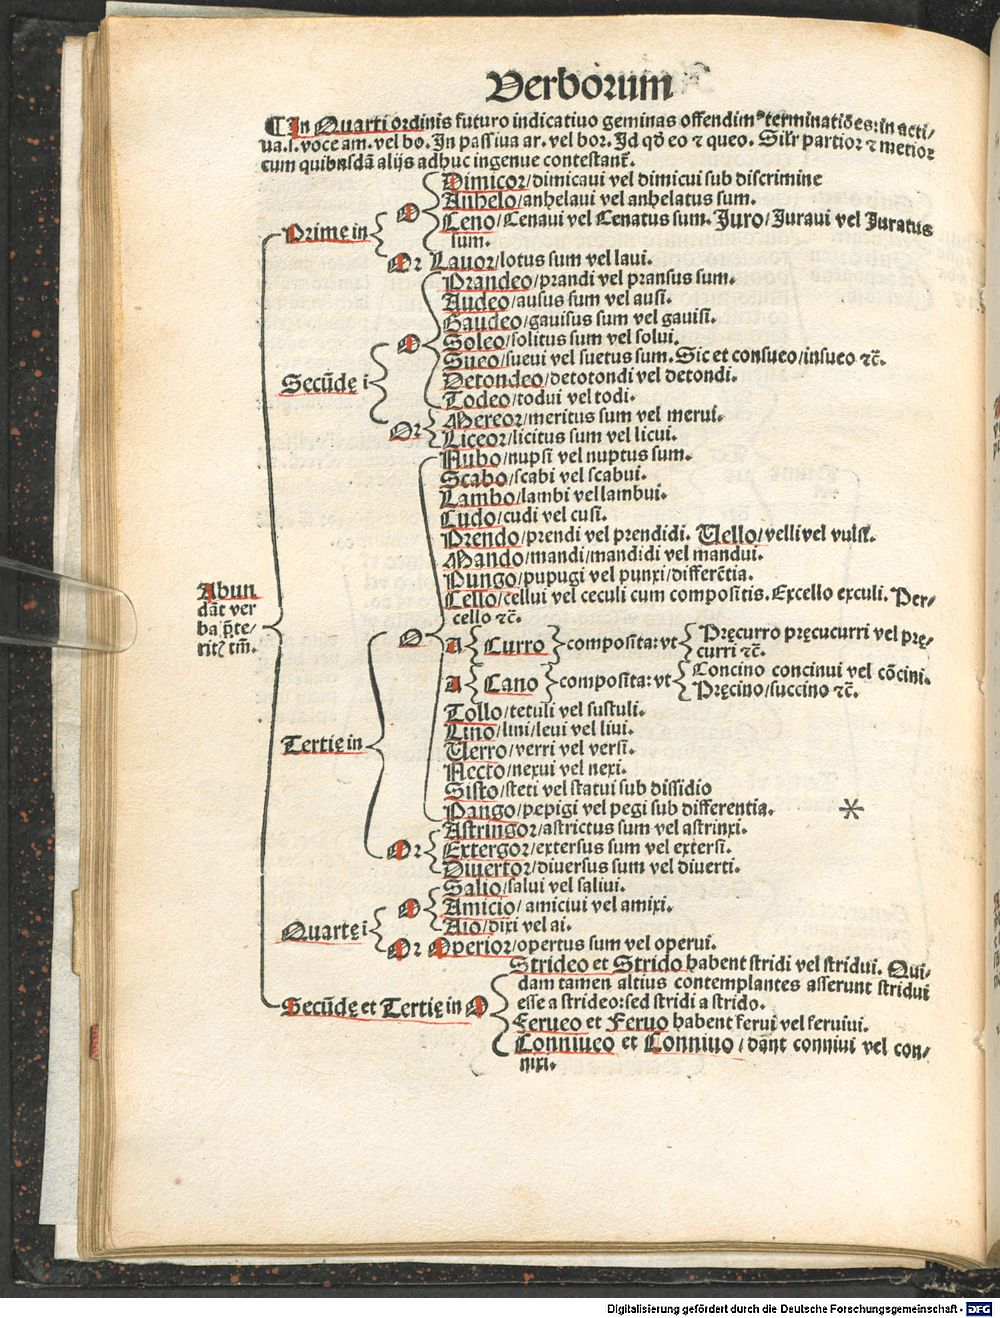 Verborum
¶ In Quarti ordinis futuro indicatiuo geminas offendimꝰ terminatiões: in acti/
ua .s. voce am. vel bo. In passiua ar. vel bor. Id qđ eo ⁊ queo. Silr partior ⁊ metior
cum quibusdã alijs adhuc ingenue contestant̃.
Dimicor/dimicaui vel dimicui sub discrimine
O Anhelo/anhelaui vel anhelatus sum.
Ceno/Cenaui vel Cenatus sum. Juro/Juraui vel Juratus
Prime in
sum.
Or Lauor/lotus sum vel laui.
Prandeo/prandi vel pransus sum.
Audeo/ausus sum vel ausi.
Gaudeo/gauisus sum vel gauisi.
O Soleo/solitus sum vel solui.
Sueo/sueui vel suetus sum. Sic et consueo/insueo ⁊c̃.
Secũdę i
Detondeo/detotondi vel detondi.
Todeo/todui vel todi.
Or Mereor/meritus sum vel merui.
Liceor/licitus sum vel licui.
Nubo/nupsi vel nuptus sum.
Scabo/scabi vel scabui.
Lambo/lambi vel lambui.
Cudo/cudi vel cusi.
Prendo/prendi vel prendidi. Vello/velli vel vulsi.
Mando/mandi/mandidi vel mandui.
Pungo/pupugi vel punxi/differẽtia.
Abun
dãt ver
ba p̃te/
rit tm̃.
Cello/cellui vel ceculi cum compositis. Excello exculi. Per/
cello ⁊c̃.
O
A Curro composita: vt Pręcurro pręcucurri vel prę/
curri ⁊c̃.
A Cano composita: vt Concino concinui vel cõcini.
Pręcino/succino ⁊c̃.
Tollo/tetuli vel sustuli.
Lino/lini/leui vel liui.
Tertię in
Verro/verri vel versi.
Necto/nexui vel nexi.
Sisto/steti vel statui sub dissidio
Pango/pepigi vel pegi sub differentia. *
Astringor/astrictus sum vel astrinxi.
Or Extergor/extersus sum vel extersi.
Diuertor/diuersus sum vel diuerti.
Salio/salui vel saliui.
O Amicio/amiciui vel amixi.
Quartę i
Aio/dixi vel ai.
Or Operior/opertus sum vel operui.
Strideo et Strido habent stridi vel stridui. Qui/
dam tamen altius contemplantes asserunt stridui
esse a strideo: sed stridi a strido.
Secũdę et Tertię in O
Ferueo et Feruo habent ferui vel feruiui.
Conniueo et Conniuo/dant conniui vel con/
nixi.
Digitalisierung gefördert durch die Deutsche Forschungsgemeinschaft - DFG